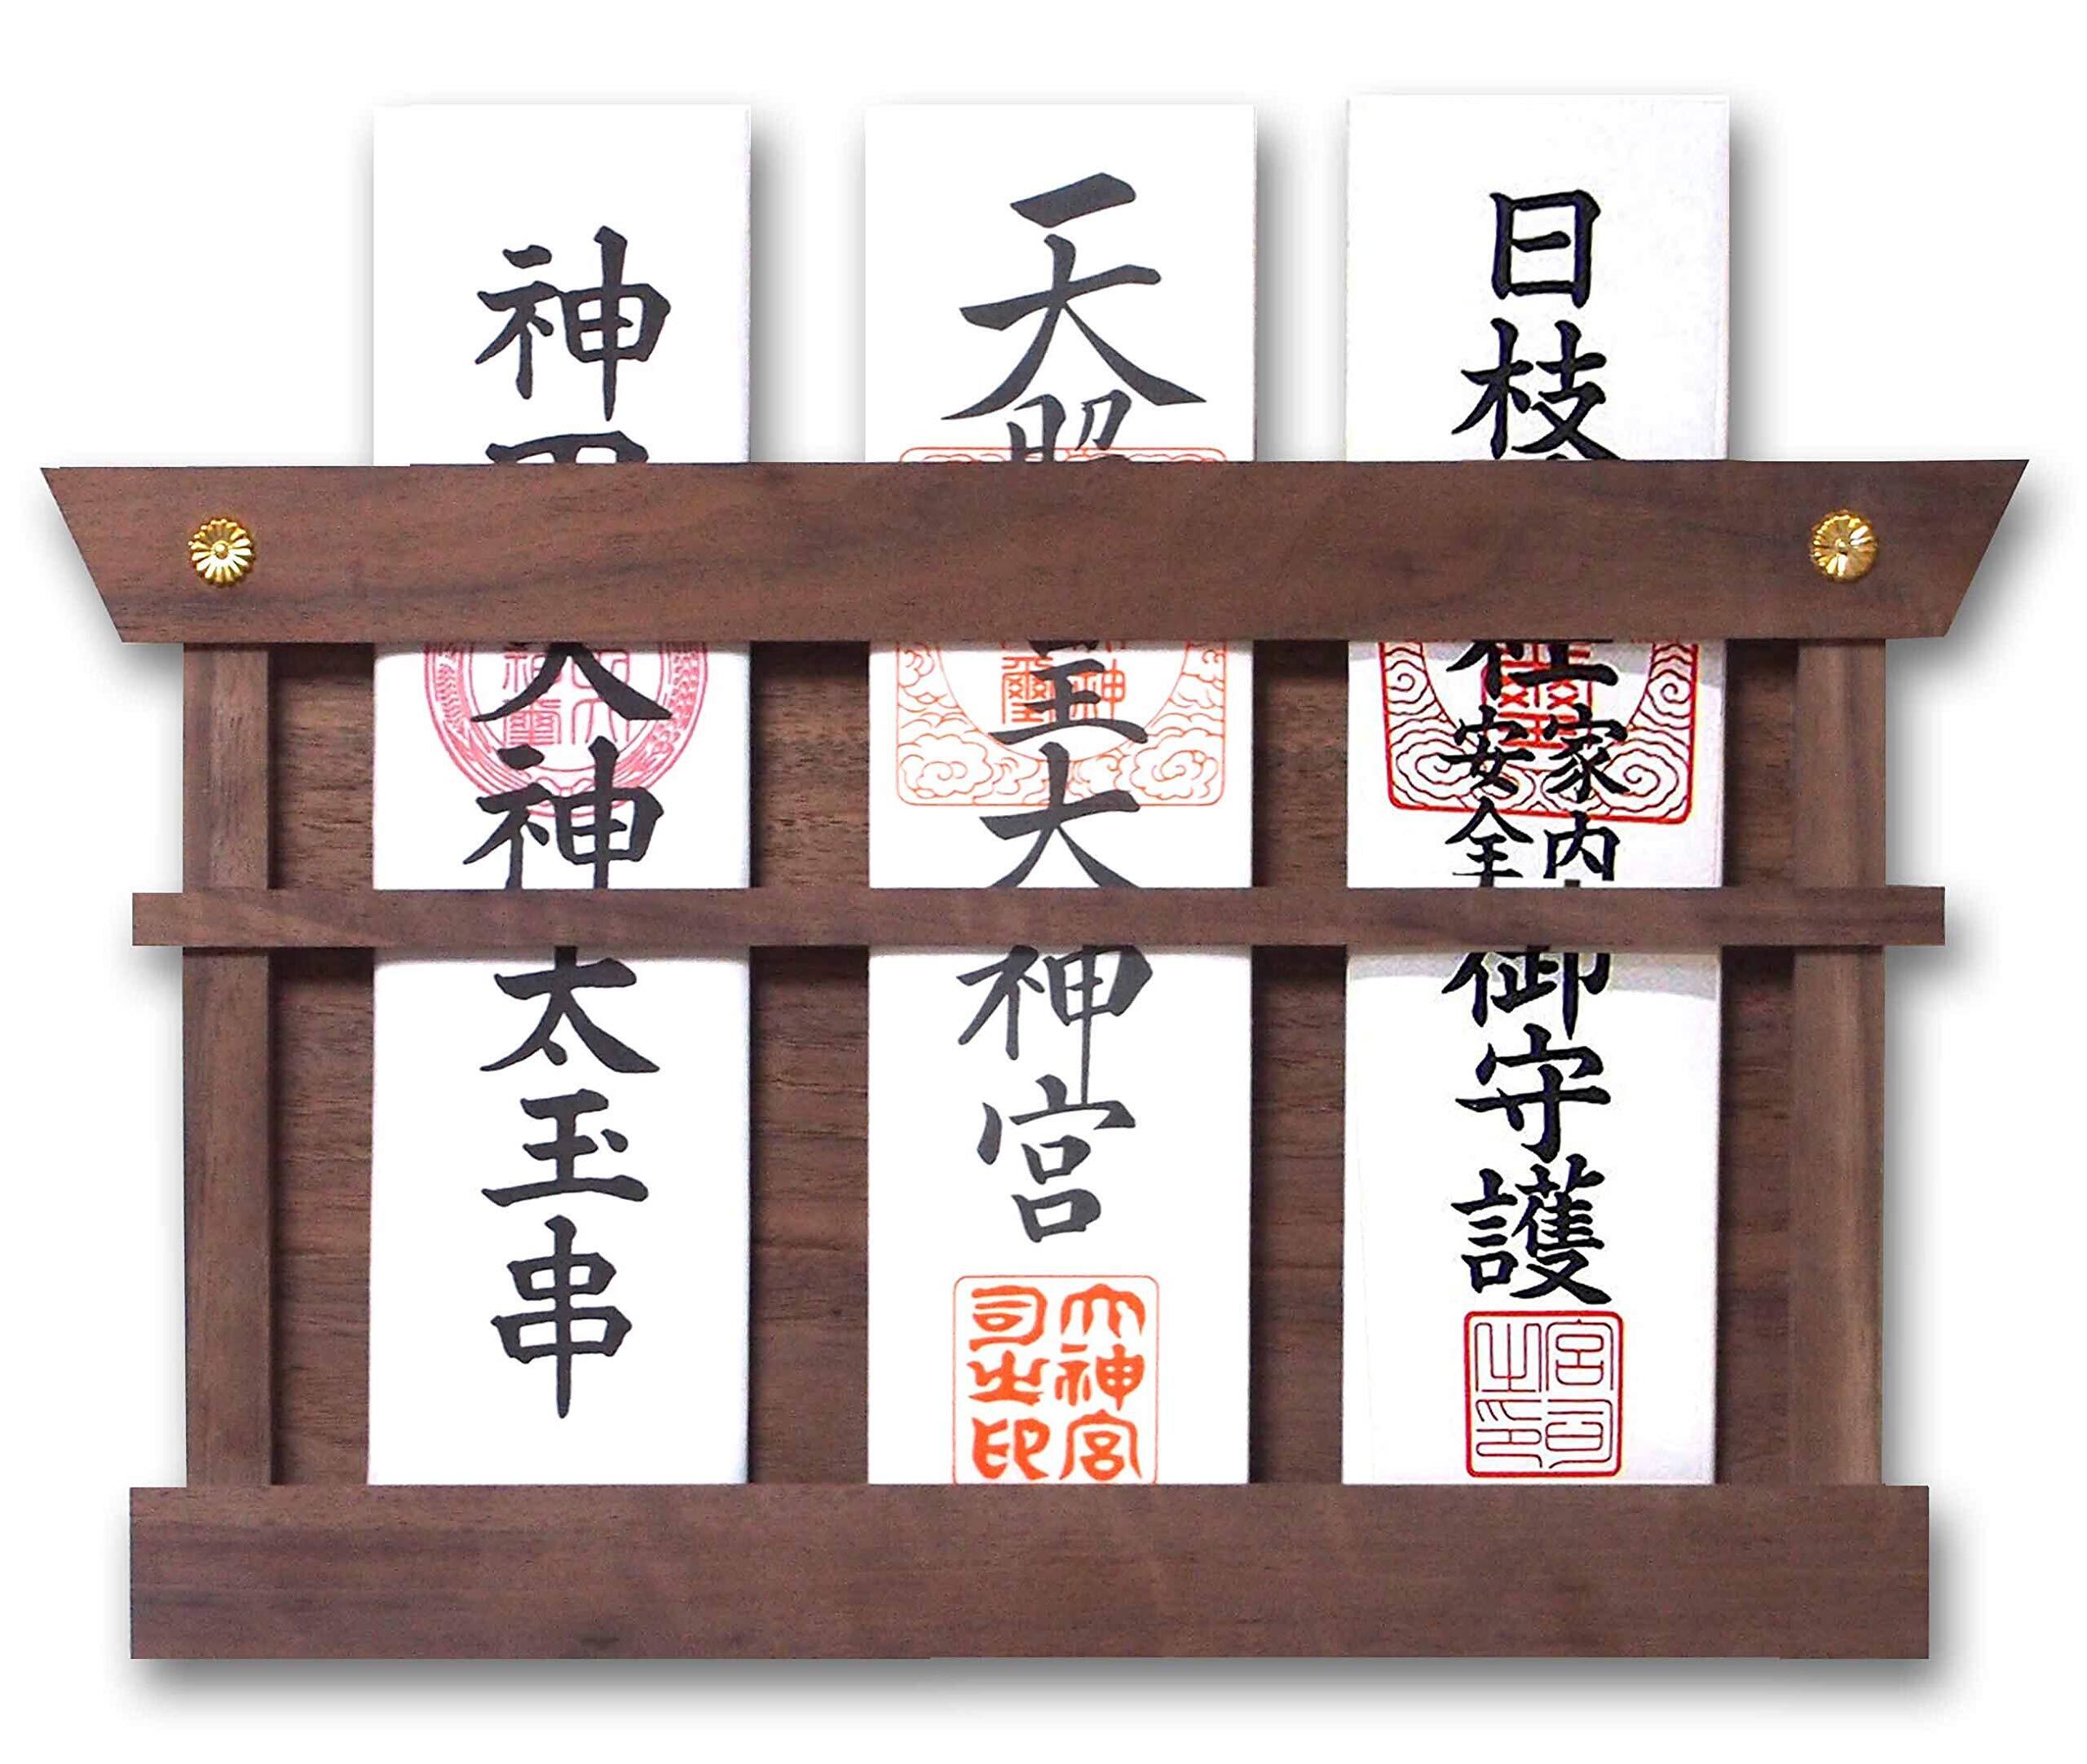 日枝
社
家内
安全
御守護
宮司
之印
天照
皇大神宮
大神宮
司之印
神田
大神
太玉串